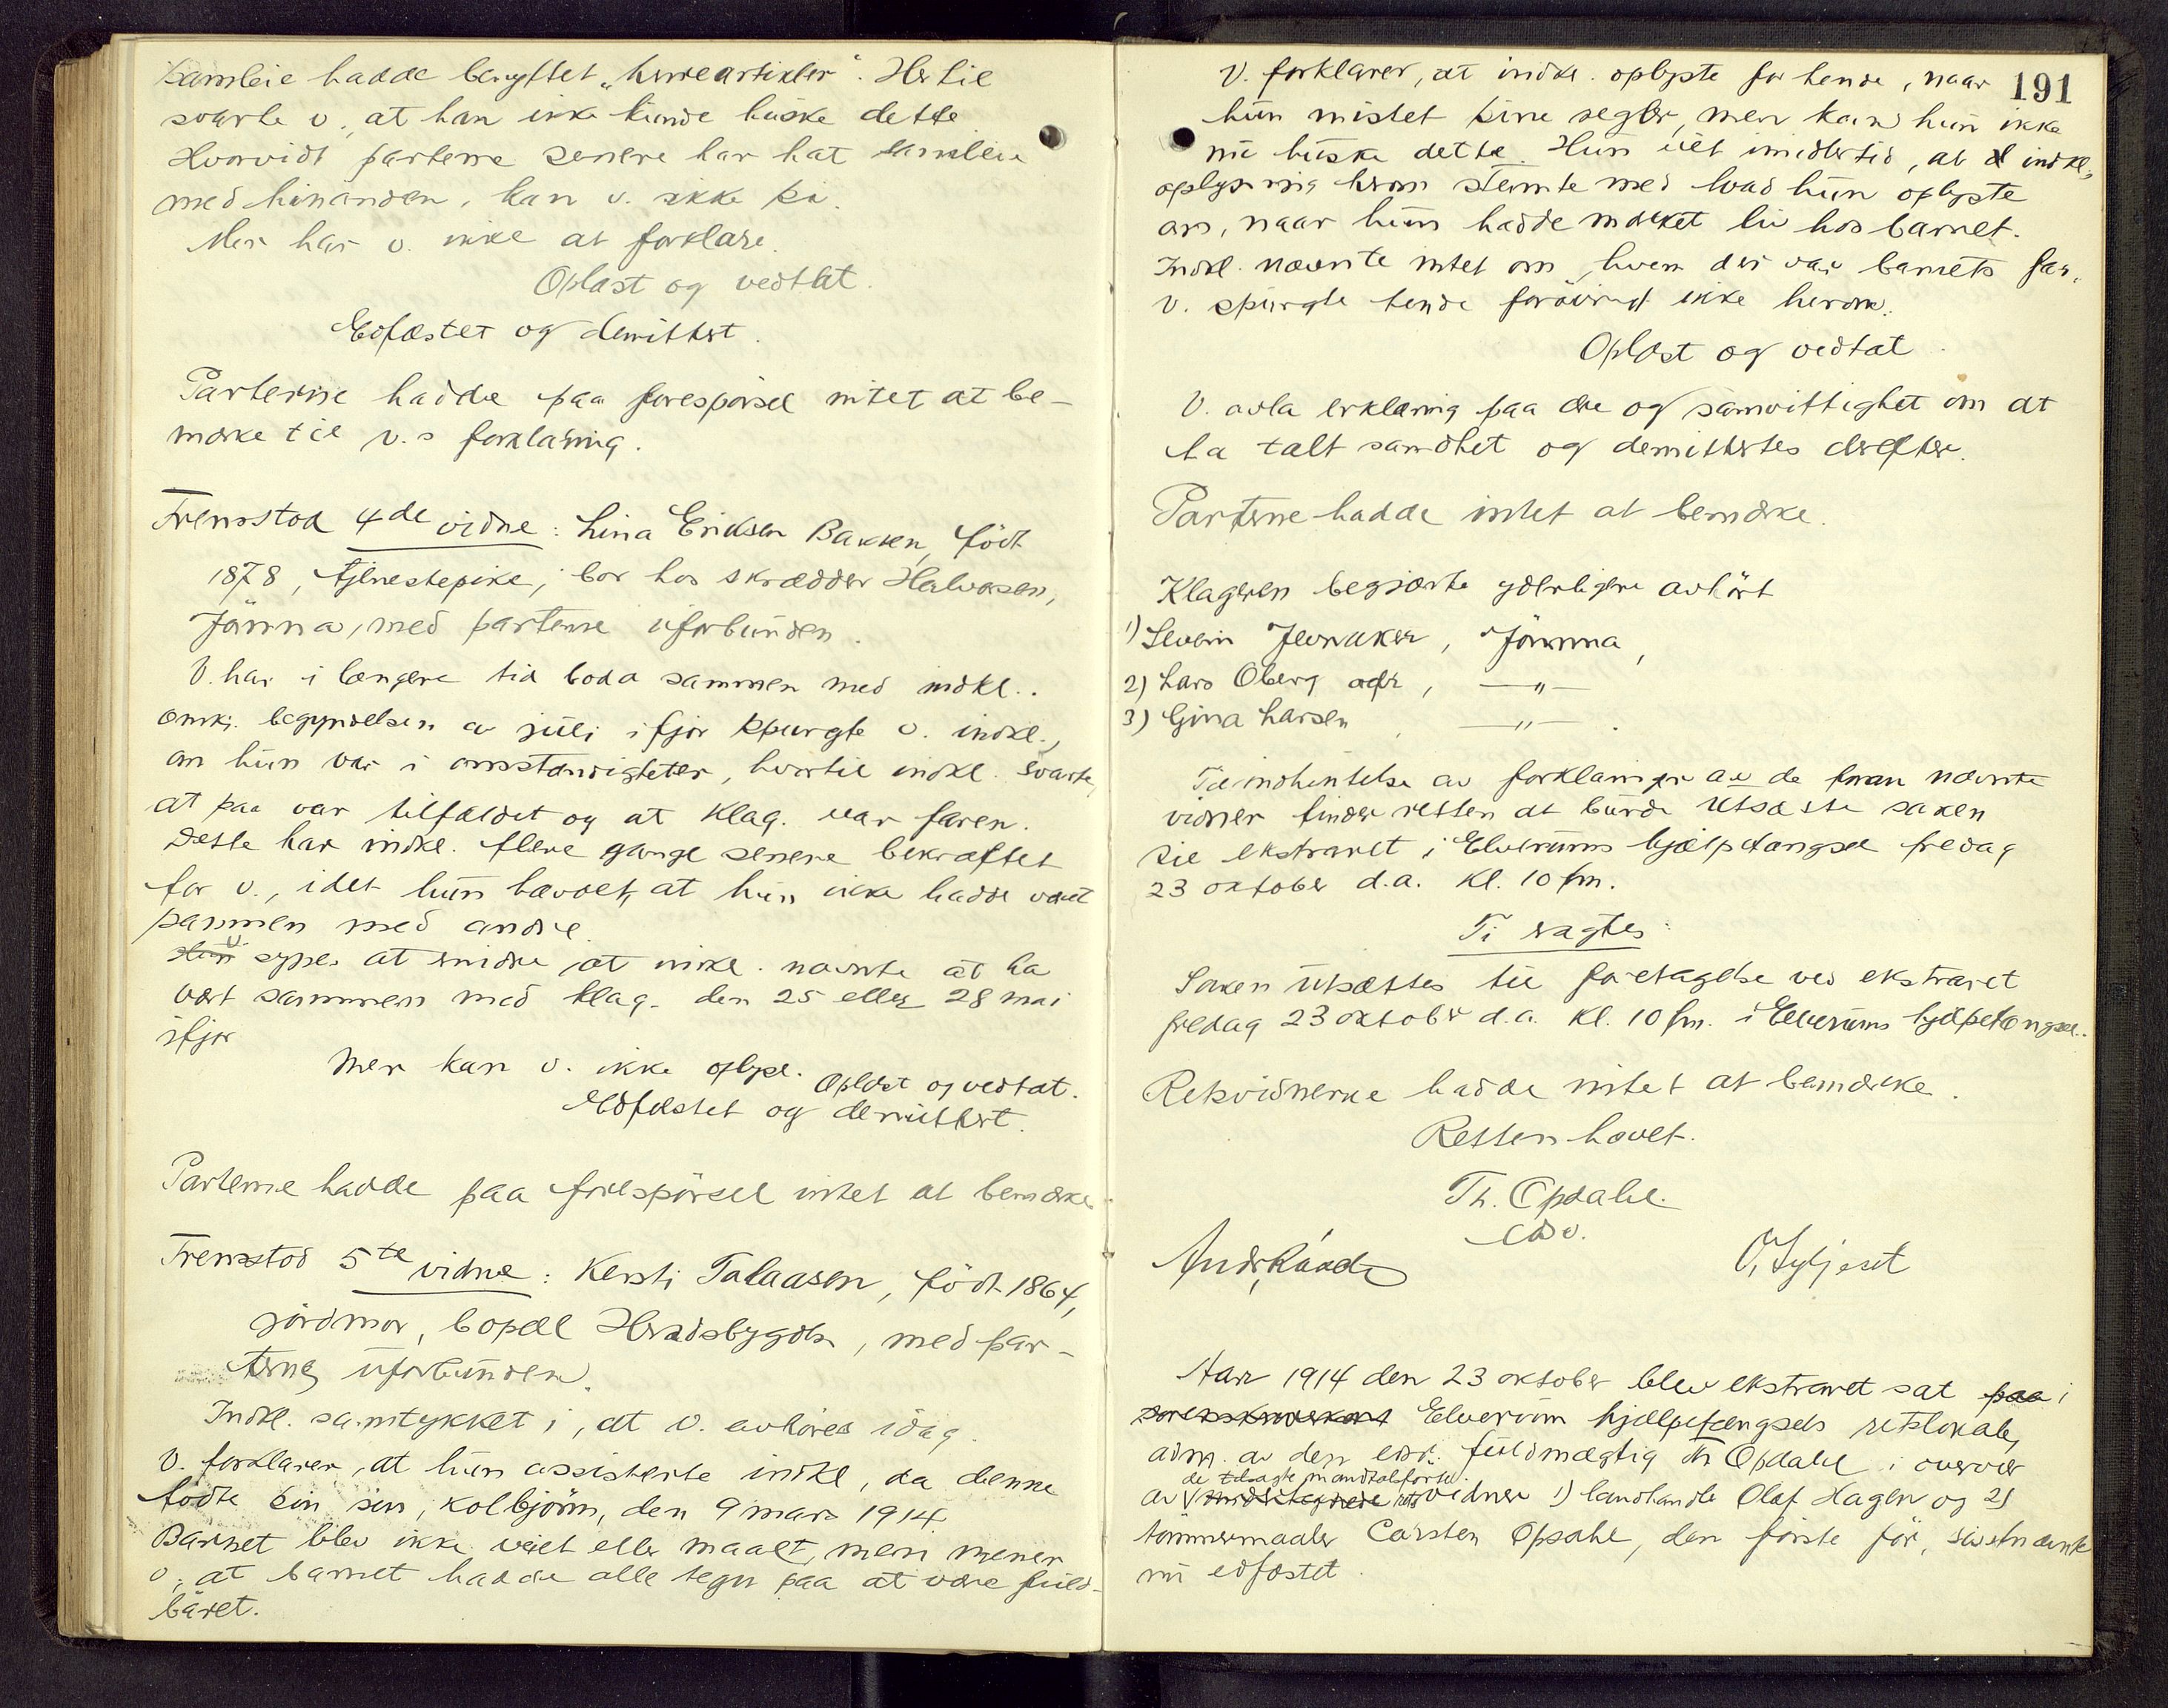 samleie hadde benyttet „herreartikler“. Hertil
svarte v., at han ikke kunde huske dette
Hvorvidt parterne senere har hat samleie
med hinanden, kan v. ikke si.
Mer har v. ikke at forklare.
Oplæst og vedtat.
Edfæstet og demittert.
Parterne hadde paa forespørsel intet at be-
merke til v.s forklaring.
Fremstod 4de vidne: Lina Eriksen Bakken, född
1878, tjenestepike, bor hos skrædder Halvorsen,
Jömna, med parterne uforbunden.
V. har i længere tid bodd sammen med indkl..
Omkr. begyndelsen av juli ifjor spurgte v. indkl.,
om hun var i omstændigheter, hvortil indkl. svarte,
at saa var tilfældet og at klag. var faren.
Dette har indkl. flere gange senere bekræftet
for v., idet hun hævdet, at hun ikke hadde været
sammen med andre.
Hun v. synes at mindes, at indkl. nævnte at ha
vært sammen med klag. den 25 eller 28 mai
ifjor
Mer kan v. ikke oplyse. Oplæst og vedtat.
Edfæstet og demittert.
Parterne hadde paa forespörsel intet at bemerke
Fremstod 5te vidne: Kersti Talaasen, född 1864,
jordmor, bopæl Heradsbygden, med par-
terne uforbunden.
Indkl. samtykket i, at v. avhöres idag.
V. forklarer, at hun assisterte indkl., da denne
födte sin sön, Kolbjörn, den 9 mars 1914.
Barnet blev ikke veiet eller maalt, men mener
v., at barnet hadde alle tegn paa at være fuld-
båret.
191
V. forklarer, at indkl. oplyste for hende, naar
hun mistet sine regler, men kan hun ikke
nu huske dette. Hun vet imidlertid, at indkl.s
oplysning herom stemte med hvad hun oplyste
om, naar hun hadde merket liv hos barnet.
Indkl. nævnte intet om, hvem der var barnets far.
V. spurgte hende forövrigt ikke herom.
Oplæst og vedtat.
V. avla erklæring paa ære og samvittighet om at
ha talt sandhet og demittertes derefter.
Parterne hadde intet at bemerke.
Klageren begjærte yderligere avhört
1) Severin Jevnaker, Jömna,
2) Lars Oberg —„—
3) Gina Larsen, —„—.
Til indhentelse av forklaringer av de foran nævnte
vidner finder retten at burde utsætte saken
til ekstraret i Elverums hjælpefængsel fredag
23 oktober d.a. kl. 10 fm.
Ti eragtes:
Saken utsættes til foretagelse ved ekstraret
fredag 23 oktober d.a. kl. 10 fm. i Elverums hjælpefængsel.
Retsvidnerne hadde intet at bemerke.
Retten hævet.
Th. Opdahl.
edv.
Aar 1914 den 23 oktober blev ekstraret sat paa i
Elverum hjælpefængsels retslokale,
adm. av den edsv. fuldmægtig Th Opdahl i overvær
de tilsagte mandtalsförte
av undertegnede retsvidner 1) landhandler Olaf Hagen og 2)
tömmermaaler Carsten Opsahl, den förste för, sistnævnte
nu edfæstet.